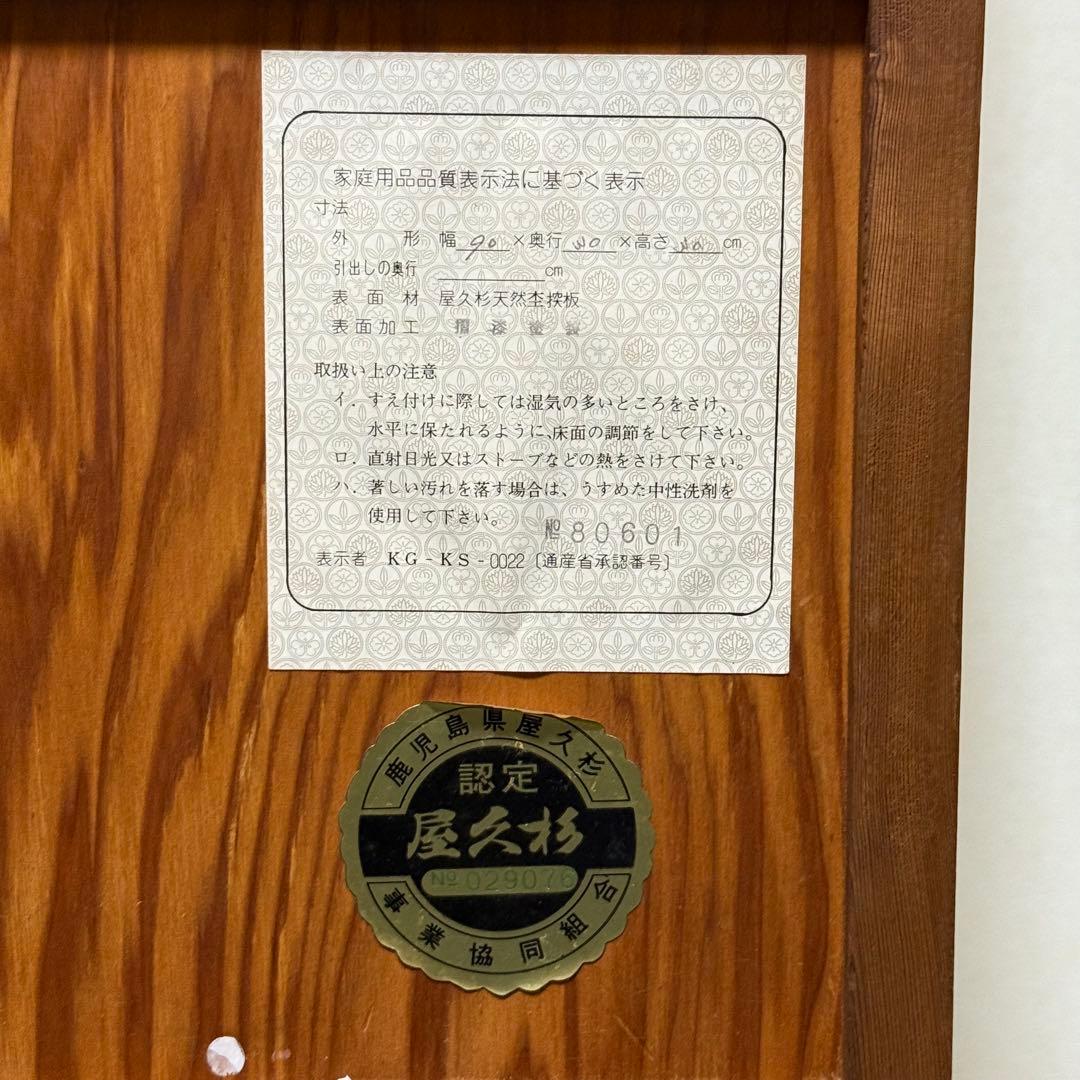 家庭用品品質表示法に基づく表示
寸法
外形 幅 90 ×奥行 40 ×高さ 40 cm
引出しの奥行 cm
表面材 屋久杉天然杢揬板
表面加工
取扱い上の注意
イ．すえ付けに際しては湿気の多いところをさけ、
水平に保たれるように、床面の調節をして下さい。
ロ．直射日光又はストーブなどの熱をさけて下さい。
ハ．著しい汚れを落す場合は、うすめた中性洗剤を
使用して下さい。
№80601
表示者 KG-KS-0022〔通産省承認番号〕
鹿児島県屋久杉
認定
屋久杉
№029076
事業協同組合